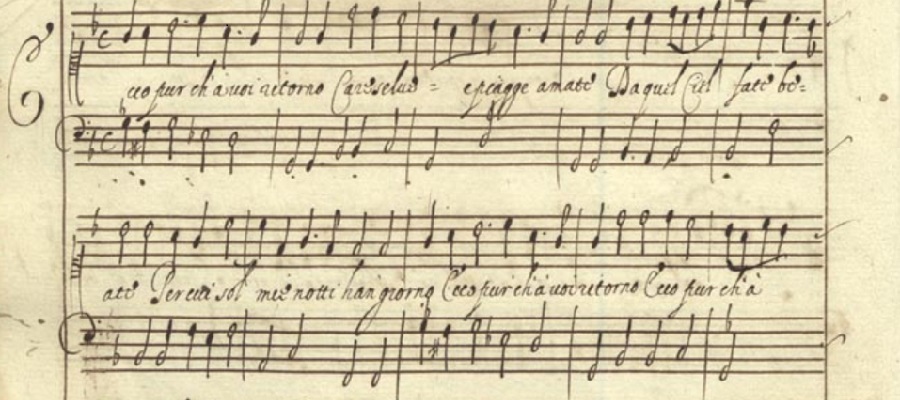 Ecco pur ch'à voi ritorno Care selve = e piagge amate Da quel Ciel fate be=
ate Per cui sol mie notti han giorno Ecco pur ch'à voi ritorno Ecco pur ch'à